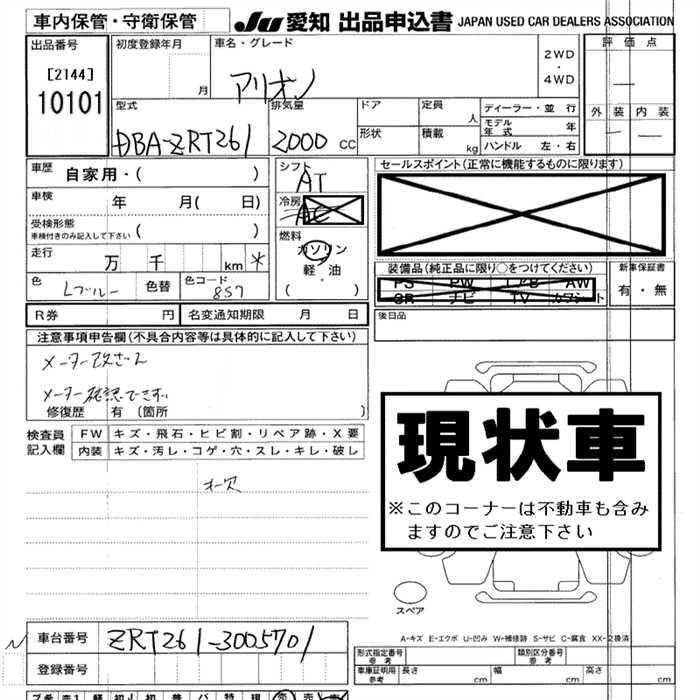 車内保管・守衛保管
JU 愛知 出品申込書 JAPAN USED CAR DEALERS ASSOCIATION
出品番号
[2144]
10101
初度登録年月
月
車名・グレード
アリオン
2WD
・
4WD
評価点
外装 内装
型式
DBA-ZRT261
排気量
2000 CC
ドア
定員
人
形状
積載
kg
ディーラー・並行
モデル年式 年
ハンドル 左・右
車歴 自家用・( )
車検 年 月( 日)
受検形態
車検付きのみ記入して下さい ( )
走行 万 千 km *
色 Lブルー 色替 色コード 857
シフト AT
冷房 AC
燃料
ガソリン
軽・油
( ・ )
セールスポイント(正常に機能するものに限ります)
装備品(純正品に限り○をつけてください)
PS PW エアB AW
SR ナビ TV カワシート
新車保証書
有・無
R券 円 名変通知期限 月 日
後日品
注意事項申告欄(不具合内容等は具体的に記入して下さい)
メーター改ざん
メーター確認できず
修復歴 有〔箇所 〕
検査員記入欄
FW キズ・飛石・ヒビ割・リペア跡・X要
内装 キズ・汚レ・コゲ・穴・スレ・キレ・破レ
現状車
※このコーナーは不動車も含み
ますのでご注意下さい
スペア
A-キズ E-エクボ U-凹み W-補修跡 S-サビ C-腐食 XX-交換済
車台番号 ZRT261-3005701
登録番号
形式指定番号
参考
類別区分番号
参考
車庫証明用
参考
長さ cm 幅 cm 高さ cm